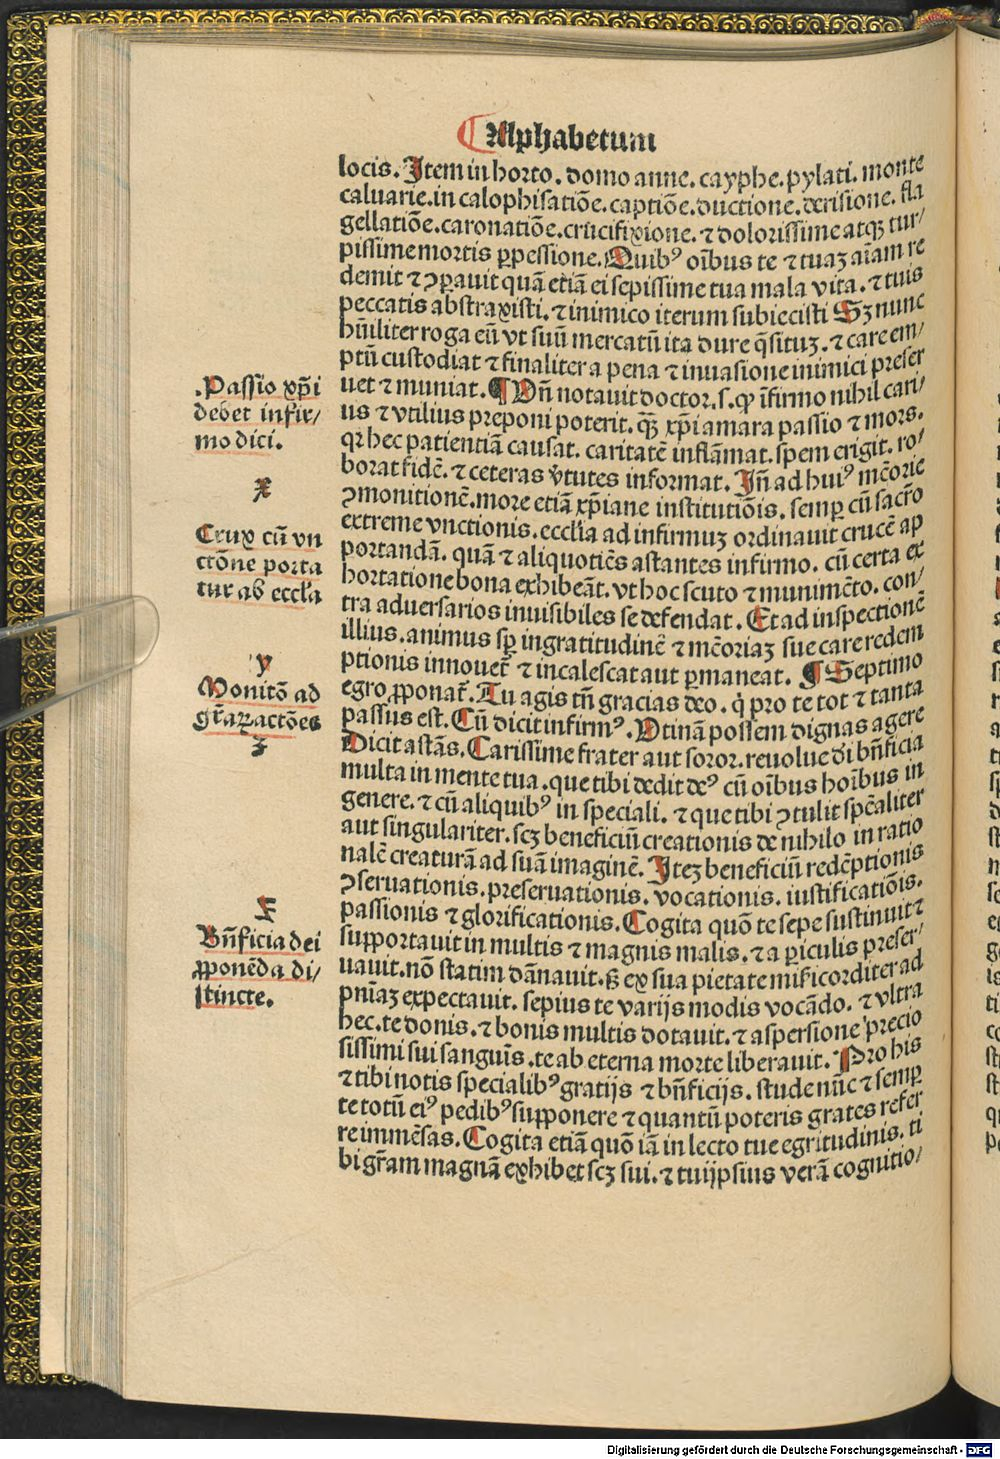 Alphabetum
locis. Item in horto. domo anne. cayphe. pylati. monte
caluarie. in calophisatiõe. captiõe. ductione. derisione. fla
gellatiõe. caronatiõe. crucifixione. ⁊ dolorissime atqꝫ tur/
pissime mortis ꝑpessione. Quibꝰ oĩbus te ⁊ tuaꝫ aĩam re
demit ⁊ ꝯꝑauit quã etiã ei sepissime tua mala vita. ⁊ tuis
peccatis abstraxisti. ⁊ inimico iterum subiecisti Sꝫ nunc
hũiliter roga eũ vt suũ mercatũ ita dure q̃situꝫ. ⁊ care em/
ptũ custodiat ⁊ finaliter a pena ⁊ inuasione inimici preser
uet ⁊ muniat. ¶ Vñ notauit doctor. s. ꝙ ĩfirmo nihil cari/
us ⁊ vtilius preponi poterit. qꝫ̃ xp̃i amara passio ⁊ mors.
qꝛ hec patientiã causat. caritatẽ inflãmat. spem erigit. ro/
borat fidẽ. ⁊ ceteras v̾tutes informat. Iñ ad huiꝰ mẽorie
ꝯmonitionẽ. more etiã xp̃iane institutiõis. semꝑ cũ sacr̃o
extreme vnctionis. eccl̃ia ad infirmuꝫ ordinauit crucẽ ap
portandã. quã ⁊ aliquotiẽs astantes infirmo. cũ certa ex
hortatione bona exhibeãt. vt hoc scuto ⁊ munimẽto. con/
tra aduersarios inuisibiles se defendat. Et ad inspectionẽ
illius. animus sꝑ ingratitudinẽ ⁊ mẽoriaꝫ sue care redem
ptionis innouet̃ ⁊ incalescat aut ꝑmaneat. ¶ Septimo
egro ꝓponat̃. Tu agis tñ gracias deo. q̇ pro te tot ⁊ tanta
passus est. Cũ dicit infirmꝰ. Vtinã possem dignas agere
Dicit astãs. Carissime frater aut soror. reuolue di bñficia
multa in mente tua. que tibi dedit deꝰ cũ oĩbus hoĩbus in
genere. ⁊ cũ aliquibꝰ in speciali. ⁊ que tibi ꝯtulit spẽaliter
aut singulariter. scꝫ beneficiũ creationis de nihilo in ratio
nalẽ creaturã ad suã imaginẽ. Iteꝫ beneficiũ redẽptionis
ꝯseruationis. preseruationis. vocationis. iustificatiõis.
passionis ⁊ glorificationis. Cogita quõ te sepe sustinuit ⁊
supportauit in multis ⁊ magnis malis. ⁊ a ꝑiculis preser/
uauit. nõ statim dãnauit. sꝫ ex sua pietate mĩsicorditer ad
pñiaꝫ expectauit. sepius te varijs modis vocãdo. ⁊ vltra
hec. te donis. ⁊ bonis multis dotauit. ⁊ aspersione precio
sissimi sui sanguĩs. te ab eterna morte liberauit. Pro his
⁊ tibi notis specialibꝰ gratijs ⁊ bñficijs. stude nũc ⁊ semꝑ
te totũ eiꝰ pedibꝰ supponere ⁊ quantũ poteris grates refer
re immẽsas. Cogita etiã quõ iã in lecto tue egritudinis. ti
bi gr̃am magnã exhibet scꝫ sui. ⁊ tuijpsius verã cognitio/
.Passio xp̃i
debet infir/
mo dici.
X
Crux cũ vn
ctõne porta
tur ab eccl̃a
y
Monitõ ad
gr̃aꝝ actões
Bñficia dei
ꝓponẽda di/
stincte.
Digitalisierung gefördert durch die Deutsche Forschungsgemeinschaft - DFG